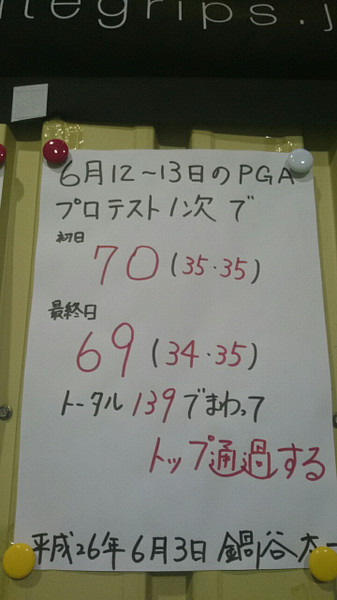 itegrips.j
6月12~13日のPGA
プロテスト1次で
初日
70(35・35)
最終日
69(34・35)
トータル139でまわって
トップ通過する
平成26年6月3日 鍋谷太一